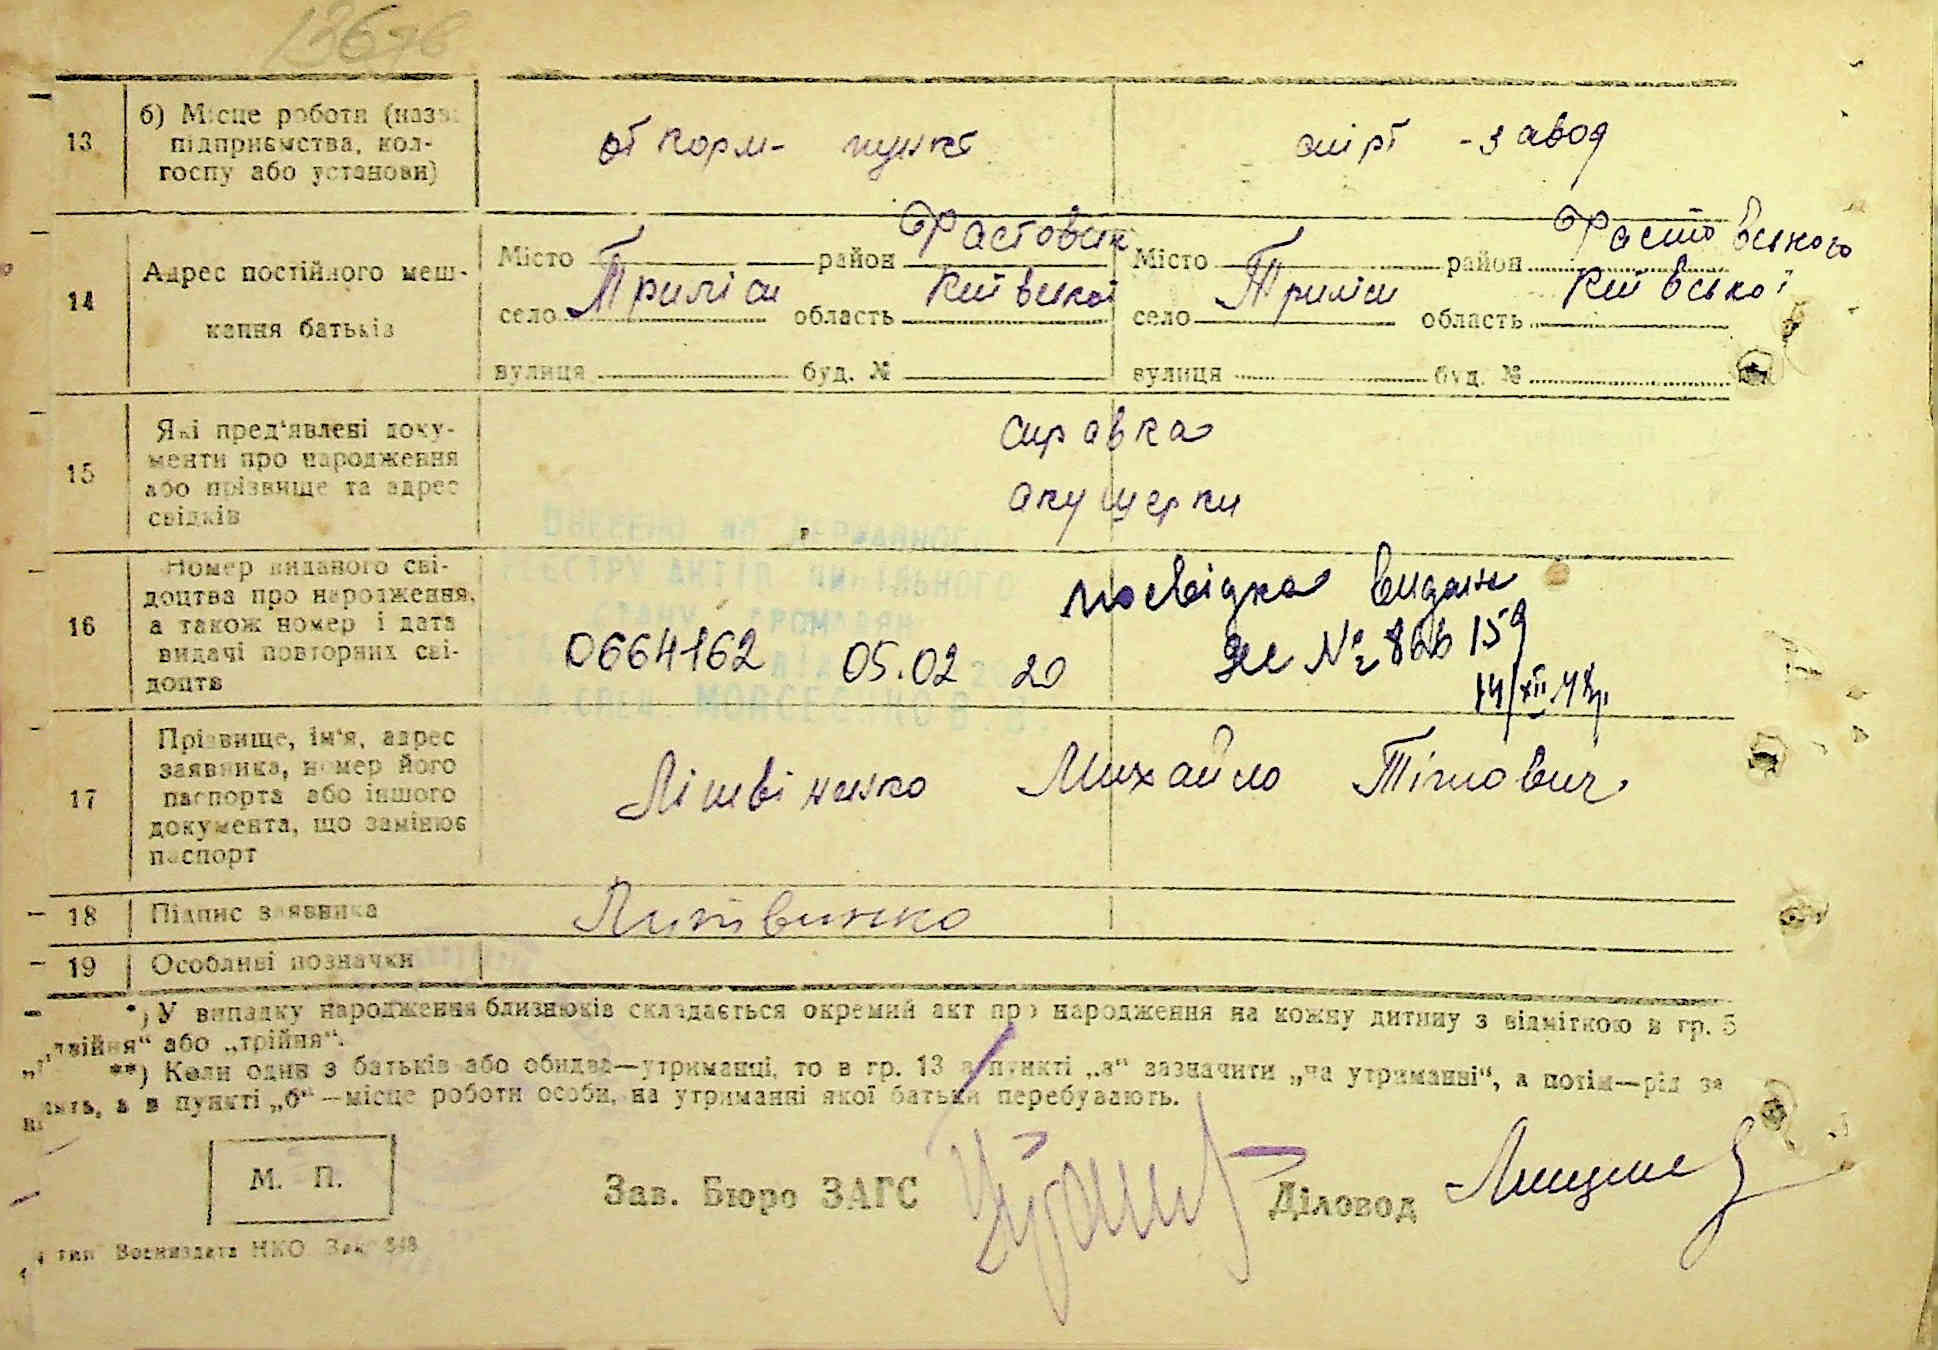 13 б) Місце роботи (назва підприємства, колгоспу або установи) откорм- пункт спірт-завод
14 Адрес постійного мешкання батьків
Місто район Фастовськ Місто район Фастовського
село Триліси область Київської село Триліси область Київської
вулиця буд. № вулиця буд. №
15 Які пред'явлені документи про народження або прізвище та адрес свідків
справка
акушерки
16 Номер виданого свідоцтва про народження, а також номер і дата видачі повторних свідоцтв
посвідка видан
0664162 05.02 20
14/XII.48р.
17 Прізвище, ім'я, адрес заявника, номер його паспорта або іншого документа, що замінює паспорт
Літвіненко Михайло Тітович
18 Підпис заявника Литвиненко
19 Особливі позначки
*) У випадку народження близнюків складається окремий акт про народження на кожну дитину з відміткою в гр. 5
„двійня“ або „трійня“.
**) Коли один з батьків або обидва—утриманці, то в гр. 13 в пункті „а“ зазначити „на утриманні“, а потім—рід за
нять, а в пункті „б“—місце роботи особи, на утриманні якої батьки перебувають.
М. П.
Зав. Бюро ЗАГС Діловод
тип Воениздата НКО Зак